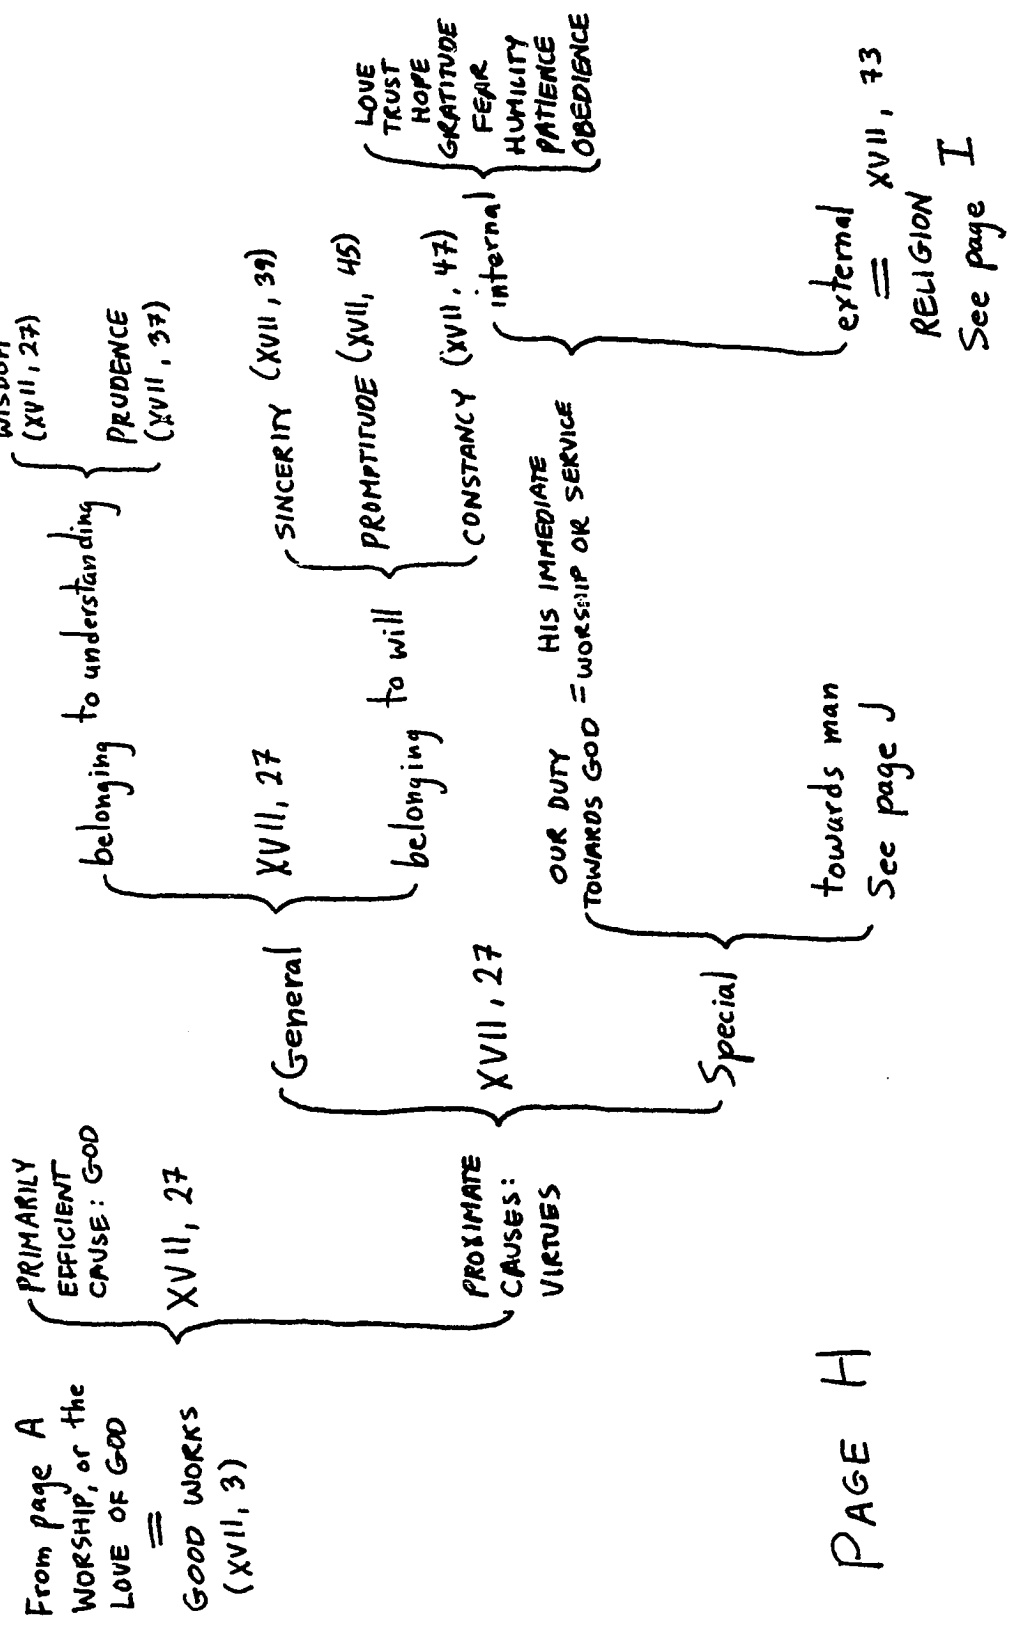 From page A
WORSHIP, or the
LOVE OF GOD
=
GOOD WORKS
(XVII, 3)
PRIMARILY
EFFICIENT
CAUSE: GOD
XVII, 27
PROXIMATE
CAUSES:
VIRTUES
General
XVII, 27
Special
belonging to understanding
XVII, 27
belonging to will
WISDOM
(XVII, 27)
PRUDENCE
(XVII, 37)
SINCERITY (XVII, 39)
PROMPTITUDE (XVII, 45)
CONSTANCY (XVII, 47)
OUR DUTY HIS IMMEDIATE
TOWARDS GOD = WORSHIP OR SERVICE
towards man
See page J
internal
LOVE
TRUST
HOPE
GRATITUDE
FEAR
HUMILITY
PATIENCE
OBEDIENCE
external
= XVII, 73
RELIGION
See page I
PAGE H